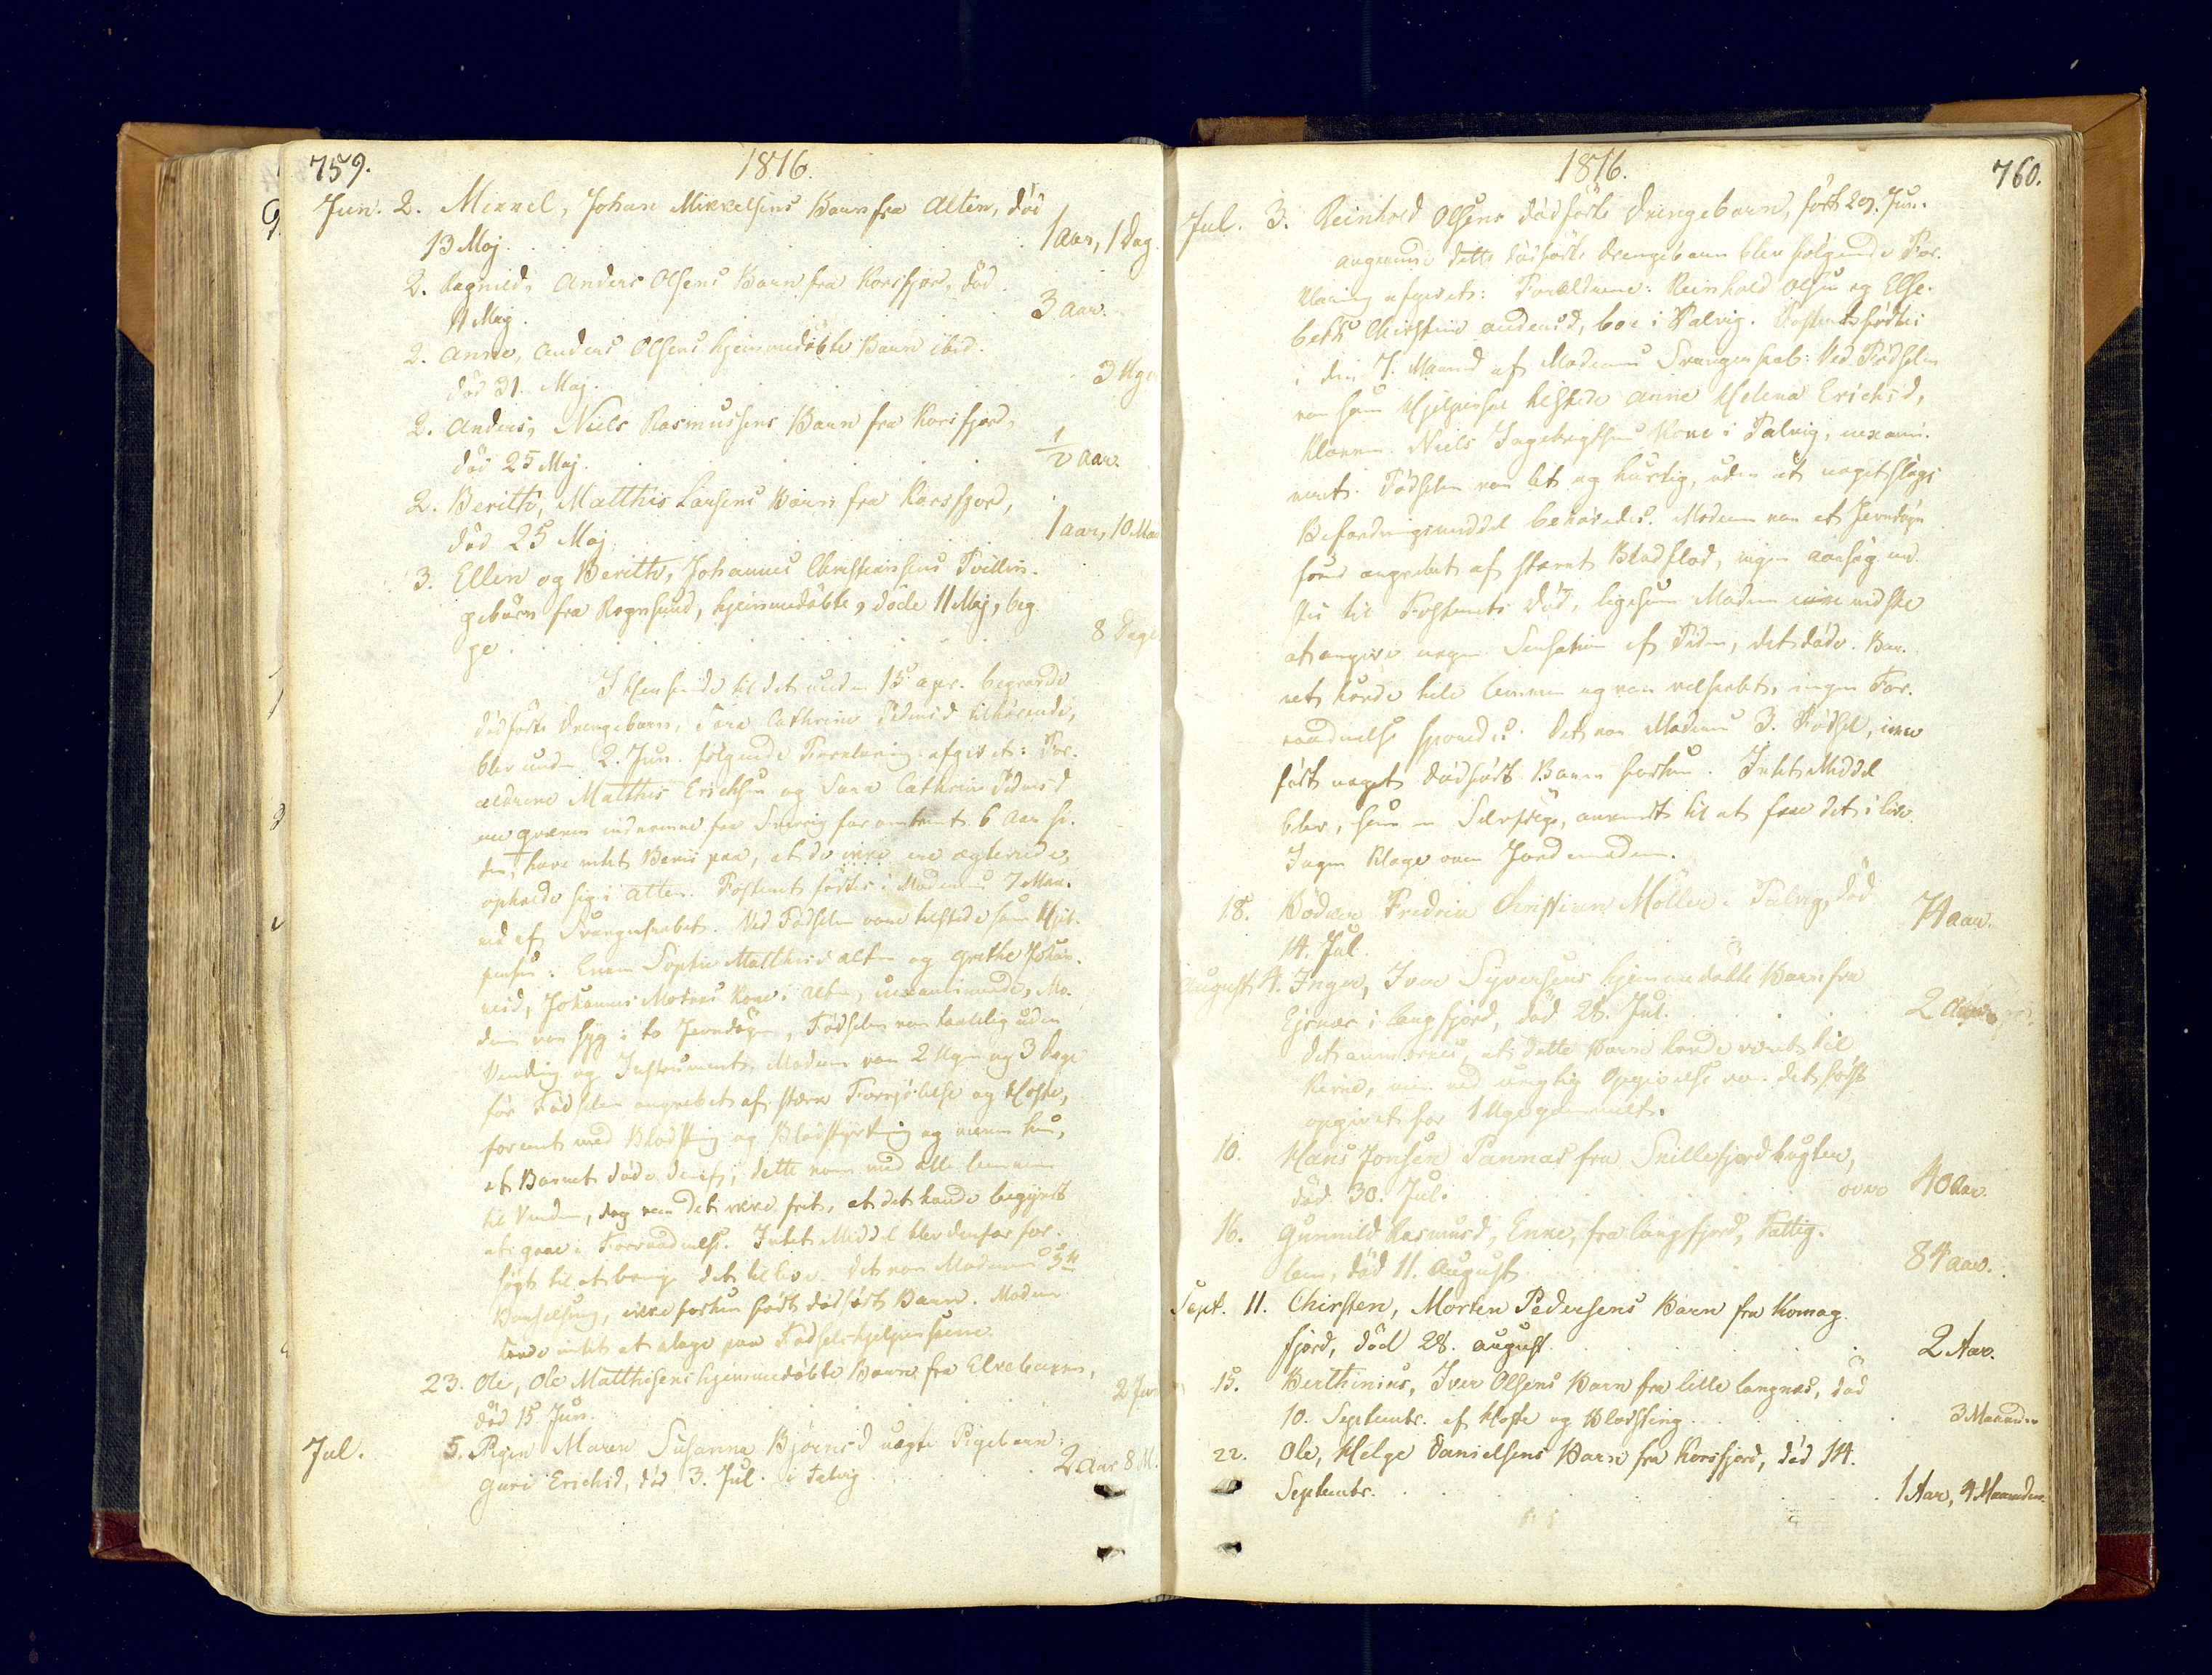 759.
1816.
Jun. 2. Mikkel, Johan Mikkelsens Barn fra Alten, död
13 Maj. 1 Aar, 1 Dag.
2. Ragnild, Anders Olsens Barn fra Korsfjord, död
11 Maj. 3 Aar.
2. Anne, Anders Olsens hjemmedöbte Barn ibid.
död 31. Maj. 3 Uger
2. Anders, Niels Rasmussens Barn fra Korsfjord,
död 25 Maj. 1/2 Aar.
2. Beritte, Matthis Larsens Barn fra Korsfjord,
död 25 Maj. 1 Aar, 10 Maa
3. Ellen og Beritte, Johannes Christiansens Tvillin-
gebörn fra Rognsund, hjemmedöbte, döde 11 Maj, beg-
ge. 8 Dage
I Henseende til det under 15 Apr. begravede
dödfödte Drengebarn, Sara Cathrine tilhörende,
blev under 2. Jun. fölgende Forklaring afgivet: For-
ældrene Matthis Erichsen og Sara Cathrine
ere qvæner indkomne fra Sverrig for omtrent 6 Aar si-
den, have intet Beviis paa, at de ikke ere ægteviede,
opholde sig i Alten. Fosteret födtes i Moderens 7 Maa-
ned af Svangerskabet. Ved Födselen vare tilstede som Hjel-
persker: Enken Sophie Matthisd Alten og Grethe Johan-
nesd, Johannes Mortens Kone i Alten, uexaminerede, Mo-
deren var syg i to Jevndögn, Födselen var taalelig uden
Vending og Instrumenter. Moderen var 2 Uger og 3 Dage
för Födselen angrebet af stærk Forkjölelse og Hoste,
forenet med Blodsting og Blodstyrtning og meener hun,
at Barnet döde deraf; dette var med alle Lemmer
til Verden, dog var det ikke frit, at det havde begyndt
at gaae i Forraadnelse. Intet Middel blev derfor for-
sögt til at bringe det til live. Det var Moderens 5te
Barselseng, ikke forhen födt dödfödt Barn. Moderen
havde intet at klage paa Födselshjelperskerne.
23. Ole, Ole Matthisens hjemmedöbte Barn fra Elvebakken,
död 15 Jun. 2
Jul. 5. Pigen Maren Susanna Björnsd uægte Pigebarn:
Guri Erichsd, död 3. Jul. i Talvig 2 Aar 8 M.
1816.
760.
Jul. 3. Reinhold Olsens dödfödte Drengebarn, födt 29. Jun.
Angaaende dette dödfödte Drengebarn blev fölgende For-
klaring afgivet: Forældrene: Reinhold Olsen og Else-
beth Christine Andersd, boe i Talvig. Fosteret födtes
i den 7. Maaned af Moderens Svangerskab: Ved Födselen
var som Hjelperske tilstede Anne Helena Erichsd,
Klokker Niels Ingebrigtsens Kone i Talvig, uexami-
neret. Födselen var let og hurtig, uden at nogetslags
Befordringsmiddel behövedes. Moderen var et Jevndögn
forud angrebet af stærkt Blodflod, ingen Aarsag vid-
stes til Fosterets Död, ligesom Moderen ikke vidste
at angive nogen Sensation af Tiden, det döde. Bar-
net havde hele Lemmer og var velskabt, ingen For-
raadnelse sporedes. Det var Moderens 3. Födsel, ikke
födt noget dödfödt Barn forhen. Intet Middel
blev, som overflödigt, anvendt til at faae det i live.
Ingen Klage over Jordemoderen.
18. Bödker Fredrik Christian Möller i Talvig, död
14. Jul. 74 Aar.
August 4. Inger, Iver Syversens hjemmedöbte Barn fra
Ejsnæs i Langfjord, död 28. Jul. 2
Det anmærkes, at dette Barn havde været til
Kirke, men ved urigtig Opgivelse var det först
opgivet for 1 Uge gammelt.
10. Hans Jonsen Tannas fra Skillefjordbugten,
död 30. Jul. over 40 Aar.
16. Gunnild Rasmusd, Enke, fra Langfjord, Fattig-
lem, död 11. August 84 Aar.
Sept. 11. Chirsten, Morten Pedersens Barn fra Komag-
fjord, död 28. August. 2 Aar.
15. Berthinius, Iver Olsens Barn fra lille Langnæs, död
10. Septembr. af Hoste og Blodsting 3 Maaneder
22. Ole, Helge Danielsens Barn fra Korsfjord, död 14.
Septembr. 1 Aar, 4 Maaneder.